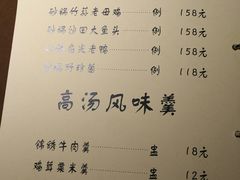 砂锅竹荪老母鸡 例 158元
砂锅沙田大鱼头 例 158元
老鸭 例 158元
砂锅野珍菌 例 118元
高汤风味羹
锦绣牛肉羹 盅 18元
鸡茸粟米羹 盅 12元